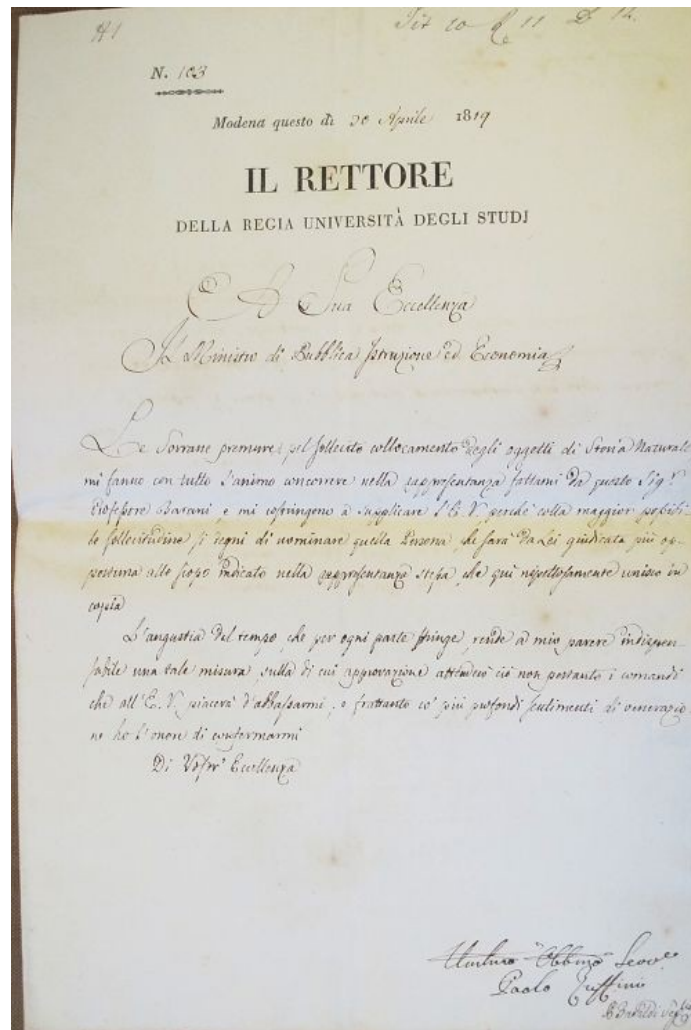 Tit 10 R 11 D 14.
N. 103
Modena questo dì 30 Aprile 1819
IL RETTORE
DELLA REGIA UNIVERSITÀ DEGLI STUDJ
A Sua Eccellenza
Il Ministro di Pubblica Istruzione ed Economia
Le Sovrane premure pel sollecito collocamento degli oggetti di Storia Naturale
mi fanno con tutto l'animo concorrere nella rappresentanza fattami da questo Sigr
Professore Barani, e mi costringono a supplicare l'E. V. perchè colla maggior possibi-
le sollecitudine si degni di nominare quella Persona, che sarà da Lei giudicata più op-
portuna allo scopo indicato nella rappresentanza stessa, che qui rispettosamente unisco in
copia
L'angustia del tempo, che per ogni parte stringe, rende a mio parere indispen-
sabile una tale misura, sulla di cui approvazione attenderò ciò non pertanto i comandi
che all'E. V. piacerà d'abbassarmi; e frattanto co' più profondi sentimenti di venerazio
ne ho l'onore di confermarmi
Di Vostr' Eccellenza
Obbmo Servre
Paolo Ruffini